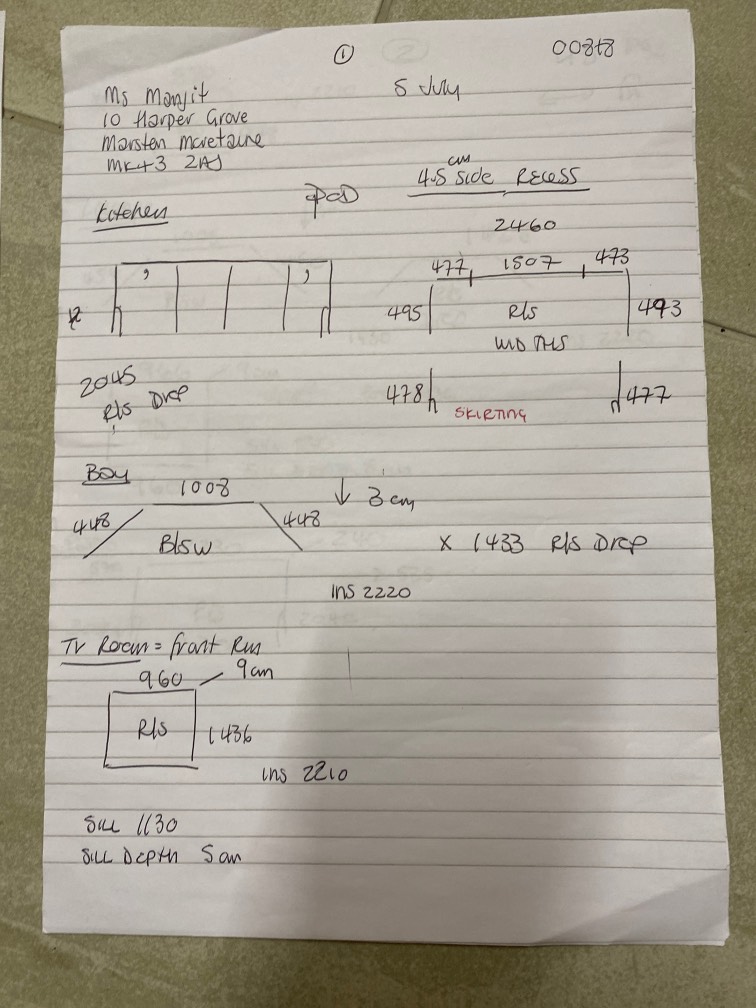 ①
00878
Ms Manjit
5 July
10 Harper Grove
Marsten moretaine
MK43 2AJ
cm
4.5 side Recess
Kitchen
POD
2460
477 1507 473
495 R/S 493
WIDTHS
2045
R/S Drop
478 477
SKIRTING
Bay
1008
↓ 3cm
448 448
B/SW
x 1433 R/S Drop
ins 2220
TV Room = front Rm
960 9cm
R/S 1436
ins 2210
Sill 1130
Sill Depth 5cm